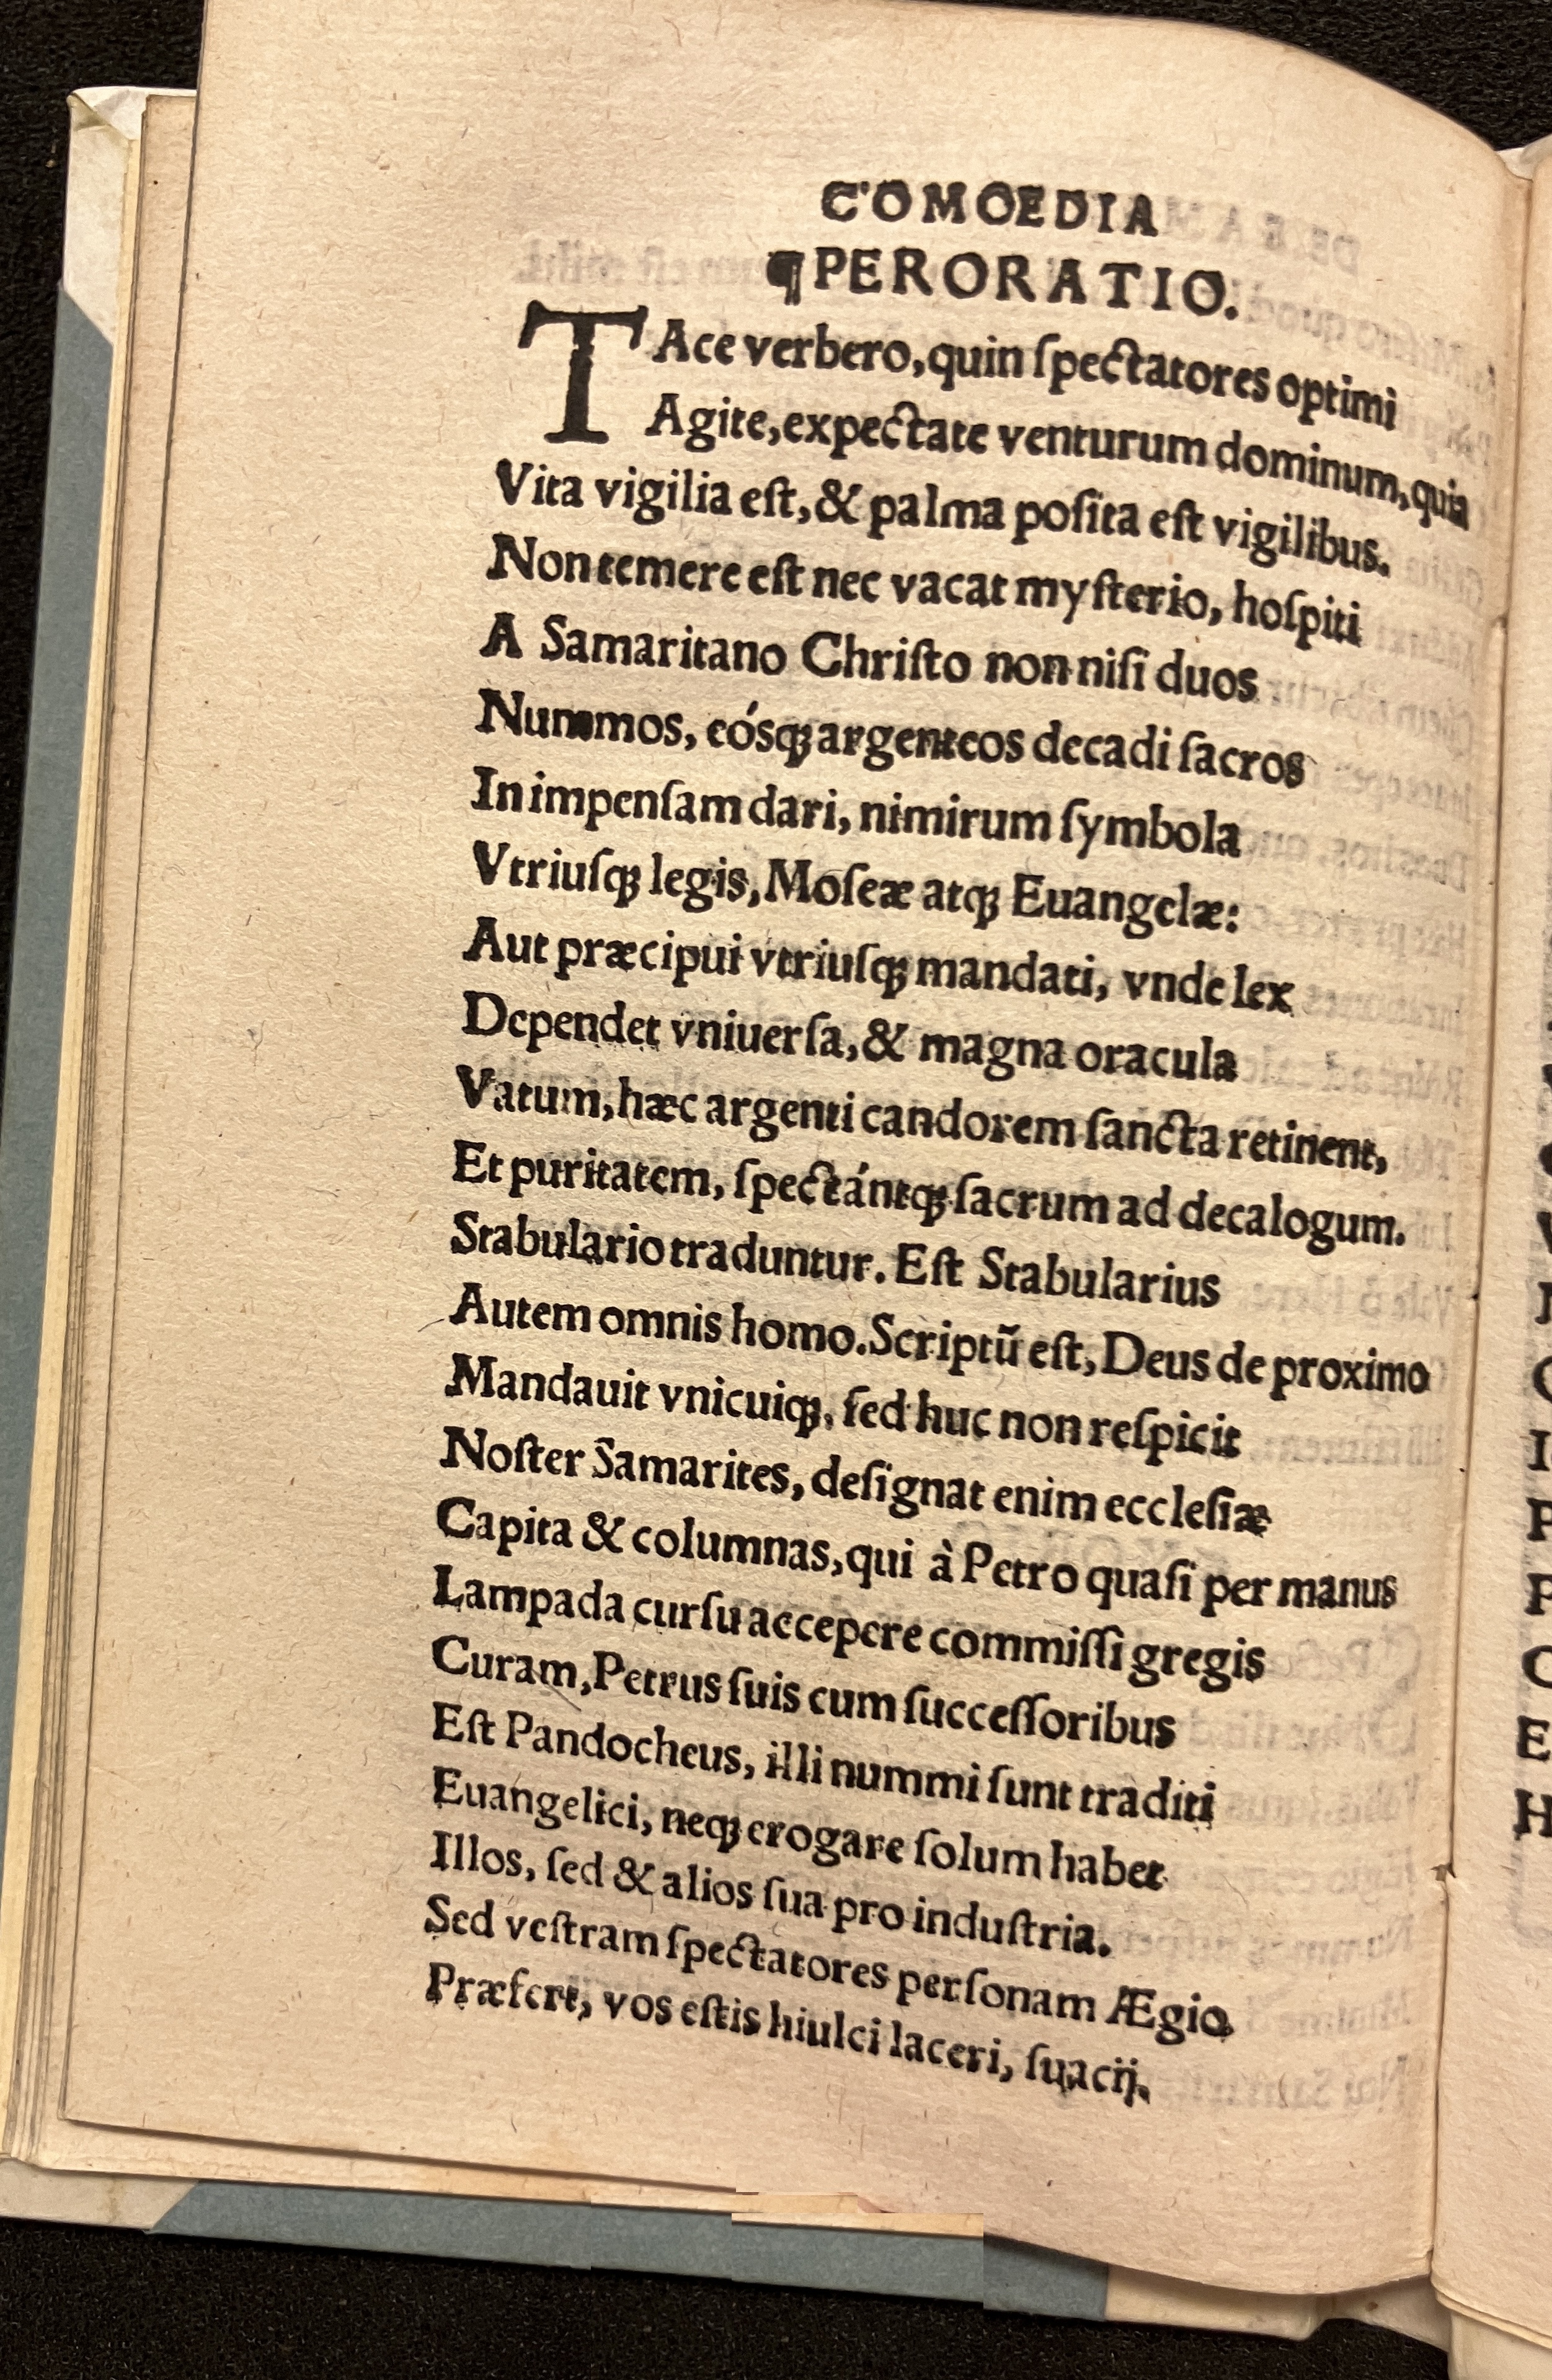 COMOEDIA
¶PERORATIO.
TAce verbero, quin ſpectatores optimi
Agite, expectate venturum dominum, quia
Vita vigilia eſt, & palma poſita eſt vigilibus.
Non temere eſt nec vacat myſterio, hoſpiti
A Samaritano Chriſto non niſi duos
Nummos, eósqꝫ argenteos decadi ſacros
In impenſam dari, nimirum ſymbola
Vtriuſqꝫ legis, Moſeæ atqꝫ Euangelæ:
Aut præcipui vtriuſqꝫ mandati, vnde lex
Dependet vniuerſa, & magna oracula
Vatum, hæc argenti candorem ſancta retinent,
Et puritatem, ſpectántqꝫ ſacrum ad decalogum.
Stabulario traduntur. Eſt Stabularius
Autem omnis homo. Scriptũ eſt, Deus de proximo
Mandauit vnicuiqꝫ, ſed huc non reſpicit
Noſter Samarites, deſignat enim eccleſiæ
Capita & columnas, qui à Petro quaſi per manus
Lampada curſu accepere commiſſi gregis
Curam, Petrus ſuis cum ſucceſſoribus
Eſt Pandocheus, illi nummi ſunt traditi
Euangelici, neqꝫ erogare ſolum habet
Illos, ſed & alios ſua pro induſtria.
Sed veſtram ſpectatores perſonam Ægio
Præfert, vos eſtis hiulci laceri, ſuacij.